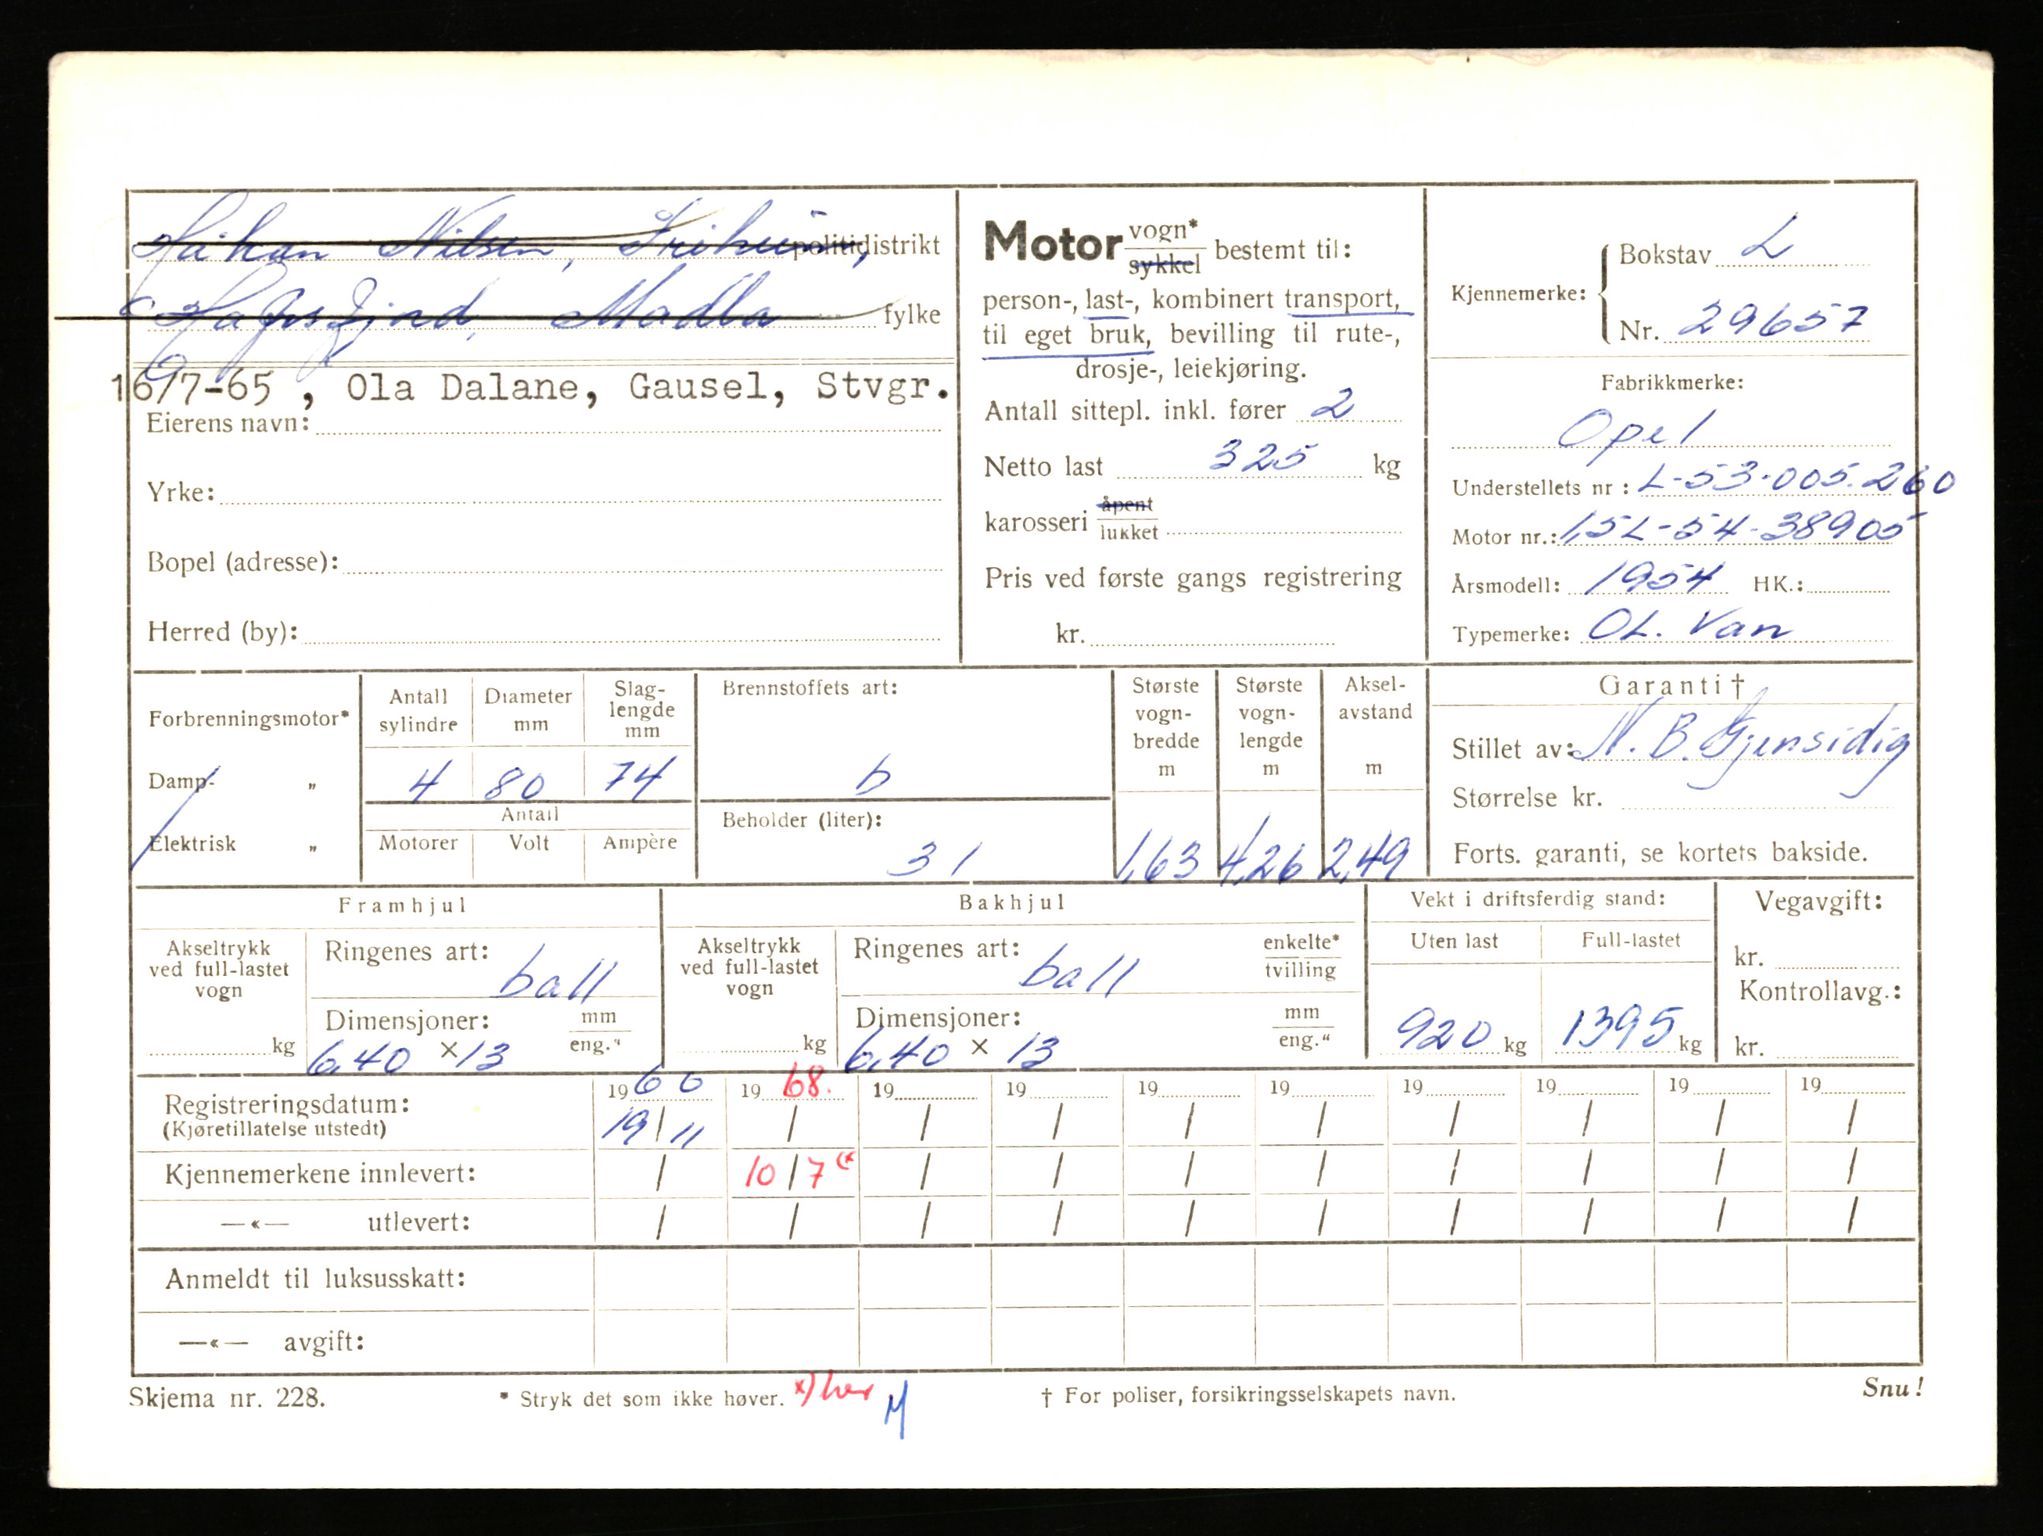 Håkon Nilsen, Friheim, politidistrikt
Hafrsfjord, Madla fylke
16/7-65 , Ola Dalane, Gausel, Stvgr.
Eierens navn:
Yrke:
Bopel (adresse):
Herred (by):
Motor vogn* sykkel bestemt til:
person-, last-, kombinert transport,
til eget bruk, bevilling til rute-,
drosje-, leiekjøring.
Antall sittepl. inkl. fører 2
Netto last 325 kg
karosseri åpent lukket
Pris ved første gangs registrering
kr.
Kjennemerke: Bokstav L
Nr. 29657
Fabrikkmerke:
Opel
Understellets nr : L-53.005.260
Motor nr.: 1,5L-54-38905
Årsmodell: 1954 HK.:
Typemerke: OL. Van
Forbrenningsmotor*
Damp- „
Elektrisk „
Antall sylindre
Diameter mm
Slag- lengde mm
4 80 74
Antall
Motorer Volt Ampère
Brennstoffets art:
b
Beholder (liter):
31
Største vogn- bredde m
1,63
Største vogn- lengde m
4,26
Aksel- avstand m
2,49
Garanti †
Stillet av: N. B. Gjensidig
Størrelse kr.
Forts. garanti, se kortets bakside.
Framhjul
Akseltrykk ved full-lastet vogn
kg
Ringenes art: ball
Dimensjoner: mm eng."
6,40 x 13
Bakhjul
Akseltrykk ved full-lastet vogn
kg
Ringenes art: ball enkelte* tvilling
Dimensjoner: mm eng."
6,40 x 13
Vekt i driftsferdig stand:
Uten last Full-lastet
920 kg 1395 kg
Vegavgift:
kr.
Kontrollavg.:
kr.
Registreringsdatum: 1960 1968. 19 19 19 19 19 19 19 19
(Kjøretillatelse utstedt) 19/11 / / / / / / / / /
Kjennemerkene innlevert: / 10/7 (* / / / / / / / /
—«— utlevert: / / / / / / / / / /
Anmeldt til luksusskatt:
—«— avgift:
Skjema nr. 228. * Stryk det som ikke høver. x) her M † For poliser, forsikringsselskapets navn. Snu!